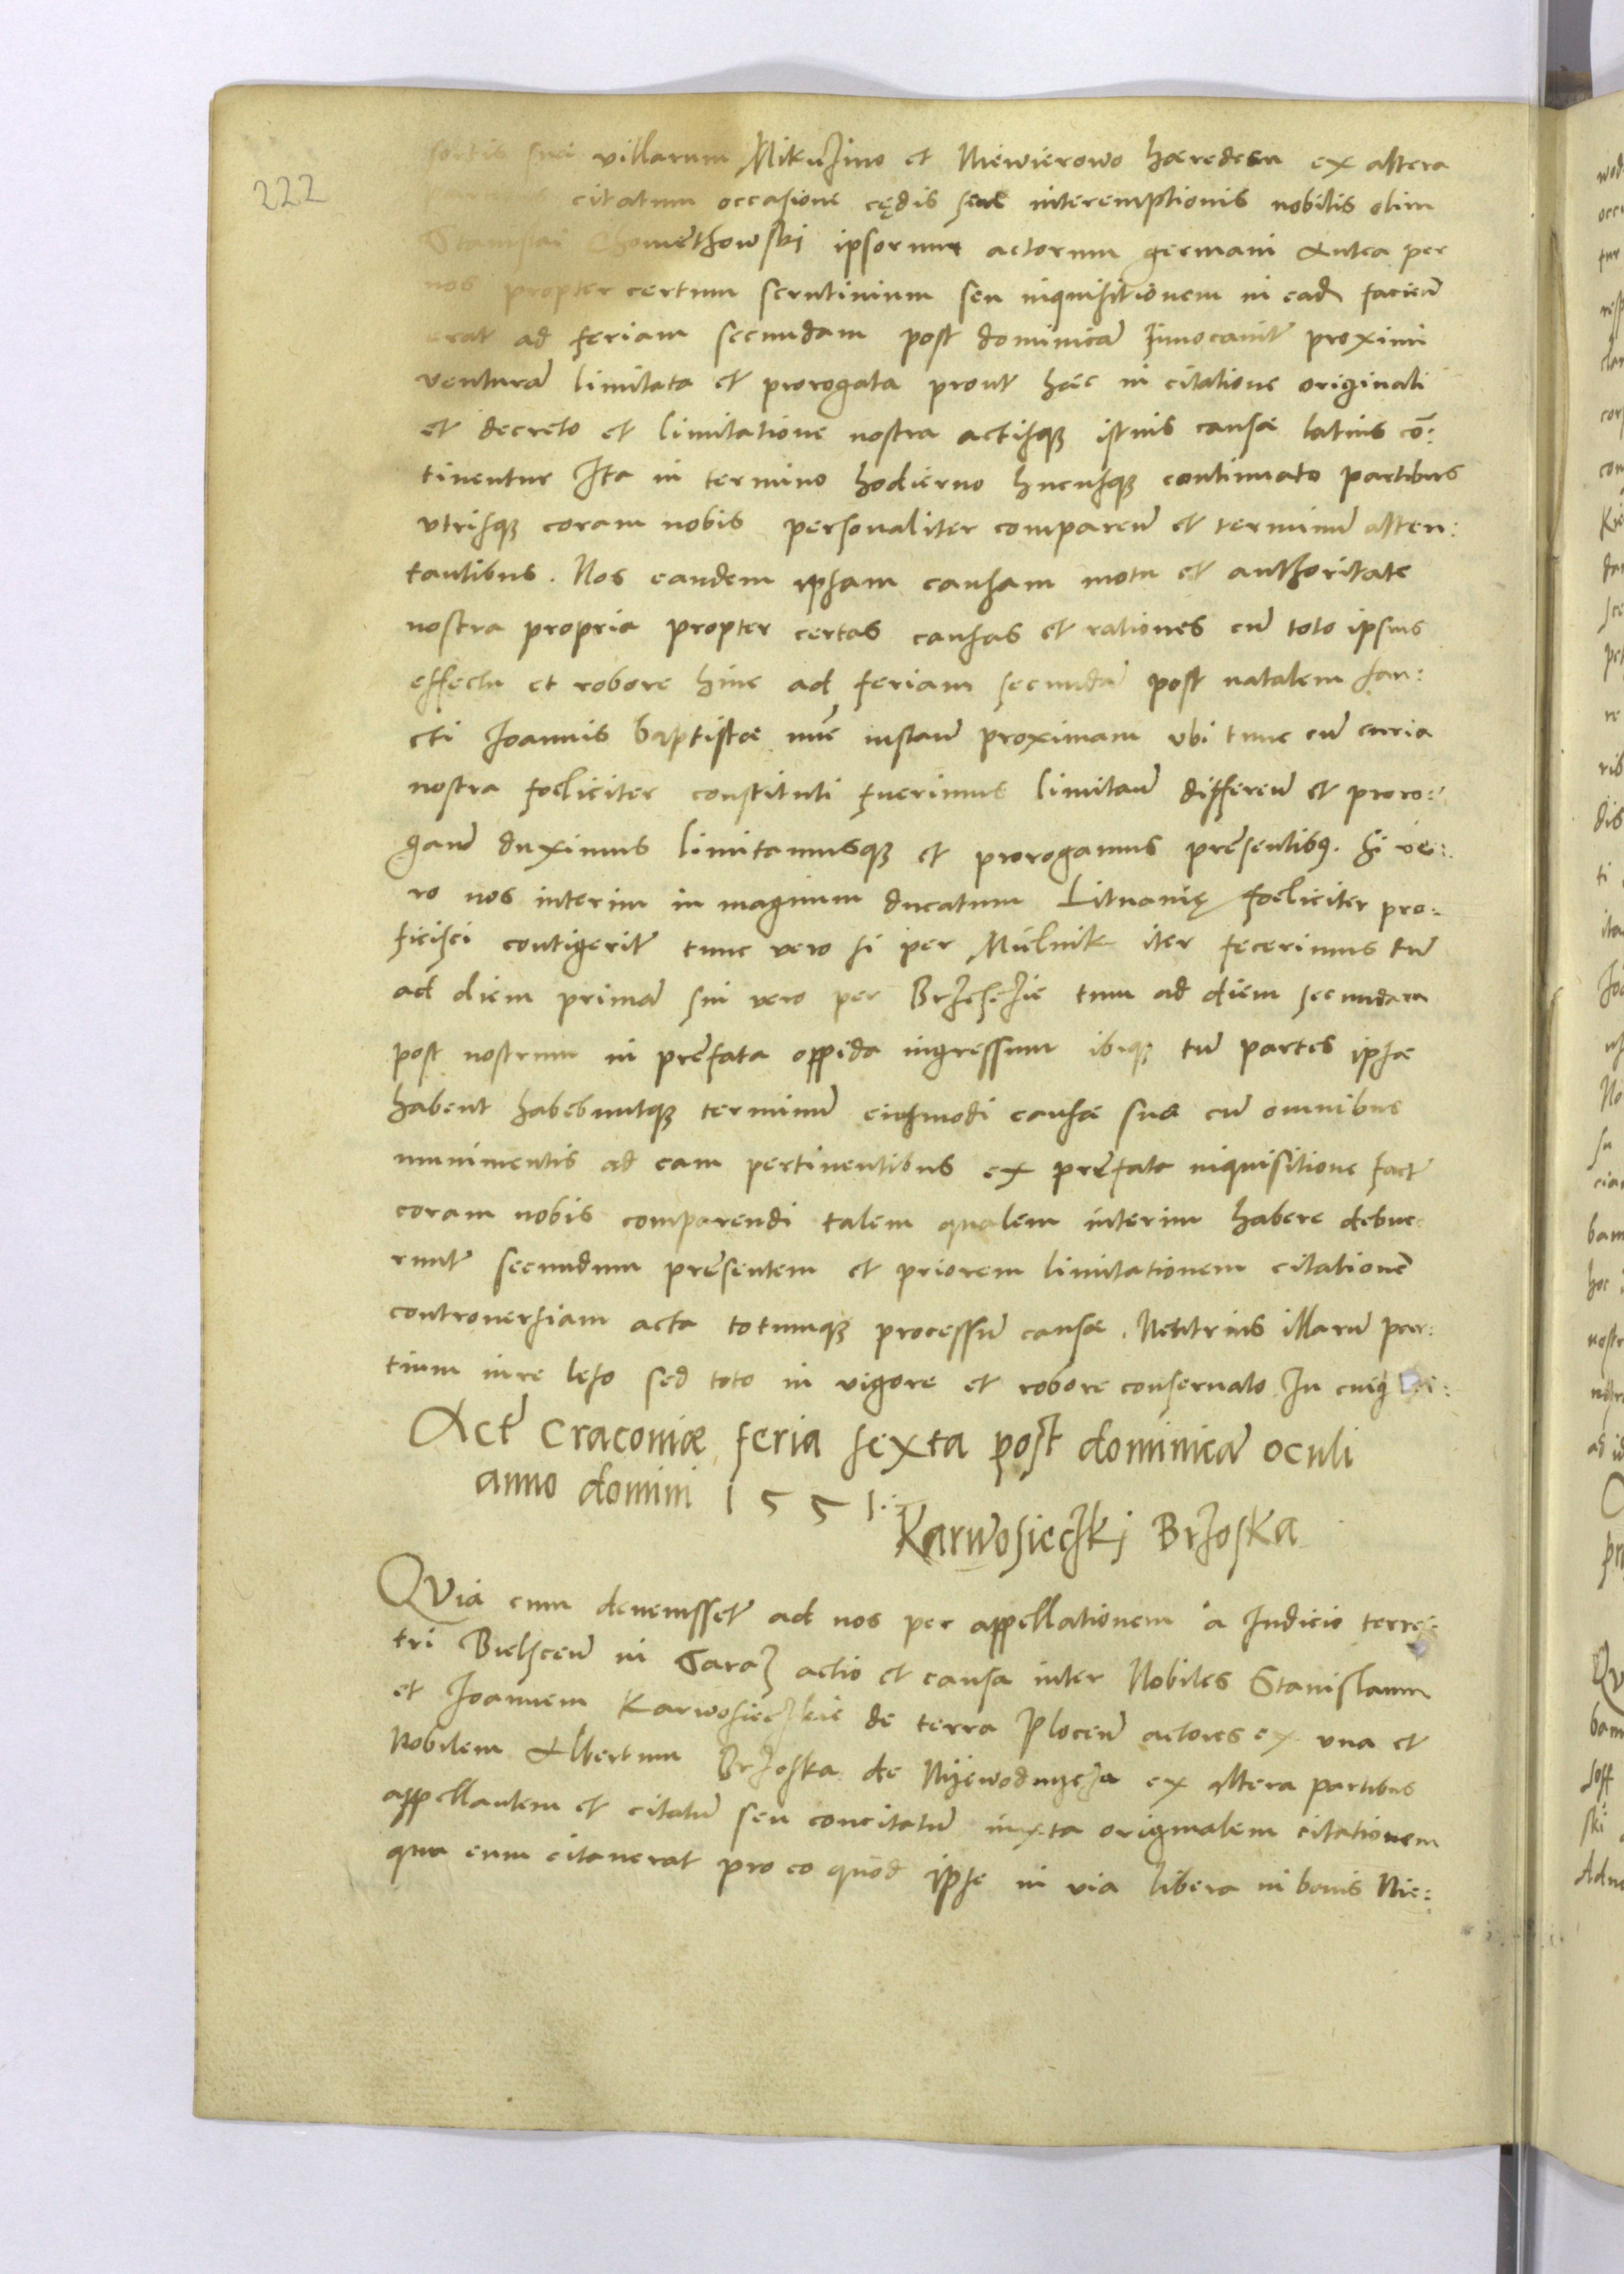 222
sortis suae villarum Mikuʒino et Niewierowo haeredem ex altera
citatum occasione cędis seu interemptionis nobilis olim
Stanislai Chomethowski ipsorum actorum germani antea per
nos propter certum scrutinium seu inquisitionem in eadē faciēn̄
erat ad feriam secundam post dominicā Inuocauit proximi
venturā limitata et prorogata prout haec in citatione originali
et decreto et limitatione nostra actisqȝ istius causae latius cō:
tinentur Ita in termino hodierno hucusqȝ continuato partibus
vtrisqȝ coram nobis personaliter comparen̄ et terminū atten:
tantibus. Nos eandem ipsam causam motu et authoritate
nostra propria propter certas causas et rationes cū toto ipsius
effectu et robore hinc ad feriam secundā post natalem san:
cti Ioannis baptistae nūc instan̄ proximam vbi tunc cū curia
nostra foeliciter constituti fuerimus limitan̄ differen̄ et proro:
gan̄ duximus limitamusqȝ et prorogamus pręsentibȝ. Si ve:
ro nos interim in magnum ducatum Lituanię foeliciter pro:
ficisci contigerit tunc vero si per Mielnik iter fecerimus tū
ad diem primā sin vero per Brʒescʒie tum ad diem secundam
post nostrum in pręfata oppida ingressum ibiqȝ tū partes ipsae
habent habebuntqȝ terminū eiusmodi causae suae cū omnibus
munimentis ad eam pertinentibus ex pręfata inquisitione fact̄
coram nobis comparendi talem qualem interim habere debue
runt secundum pręsentem et priorem limitationem citationē
controuersiam acta totumqȝ processū causae. Neutrius illarū par:
tium iure leso sed toto in vigore et robore conseruato In cuiȝ rei:
Act̄ Cracouiae feria sexta post dominicā oculi
anno domini 1551.
Karwosiecʒki Brʒoska
QVia cum deuenisset ad nos per appellationem a Iudicio terres:
tri Bielscen̄ in Saraʒ actio et causa inter Nobiles Stanislaum
et Ioannem Karwosiecʒkie de terra Plocen̄ actores ex vna et
Nobilem Albertum Brʒoska de Nyewodnycʒa ex altera partibus
appellantem et citatū seu concitatū iuxta originalem citationem
qua eum citauerat pro eo quod ipse in via libera in bonis Nie: